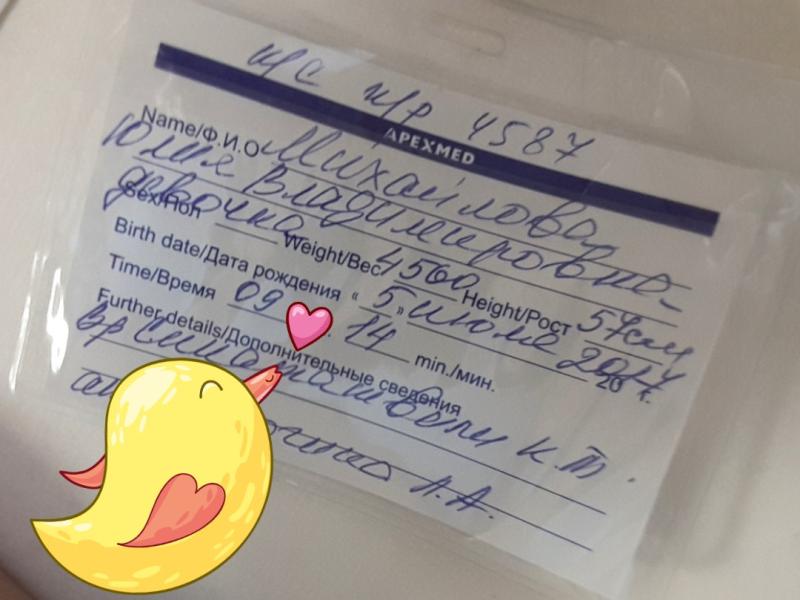 4587
APEXMED
Name/Ф.И.О Михайлова
Юлия Владимировна
Sex/Пол девочка Weight/Вес 4560 Height/Рост 57см
Birth date/Дата рождения « 5 » 2017 г.
Time/Время 09 14 min./мин.
Further details/Дополнительные сведения
Вр К.Т.
А.А.